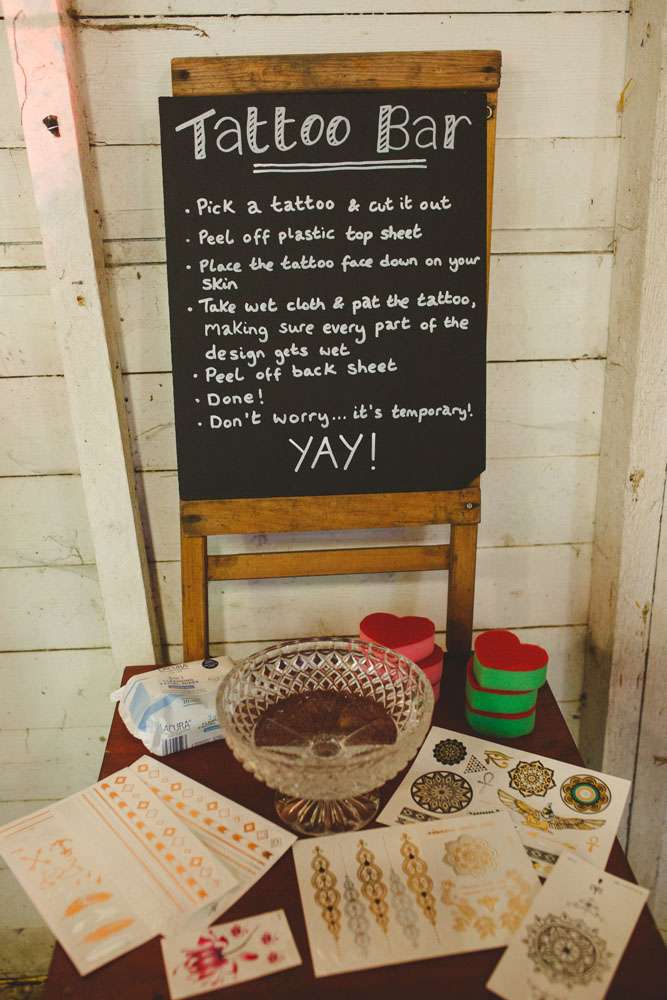 Tattoo Bar
• Pick a tattoo & cut it out
• Peel off plastic top sheet
• Place the tattoo face down on your
skin
• Take wet cloth & pat the tattoo,
making sure every part of the
design gets wet
• Peel off back sheet
• Done!
• Don't worry... it's temporary!
YAY!
ACURA